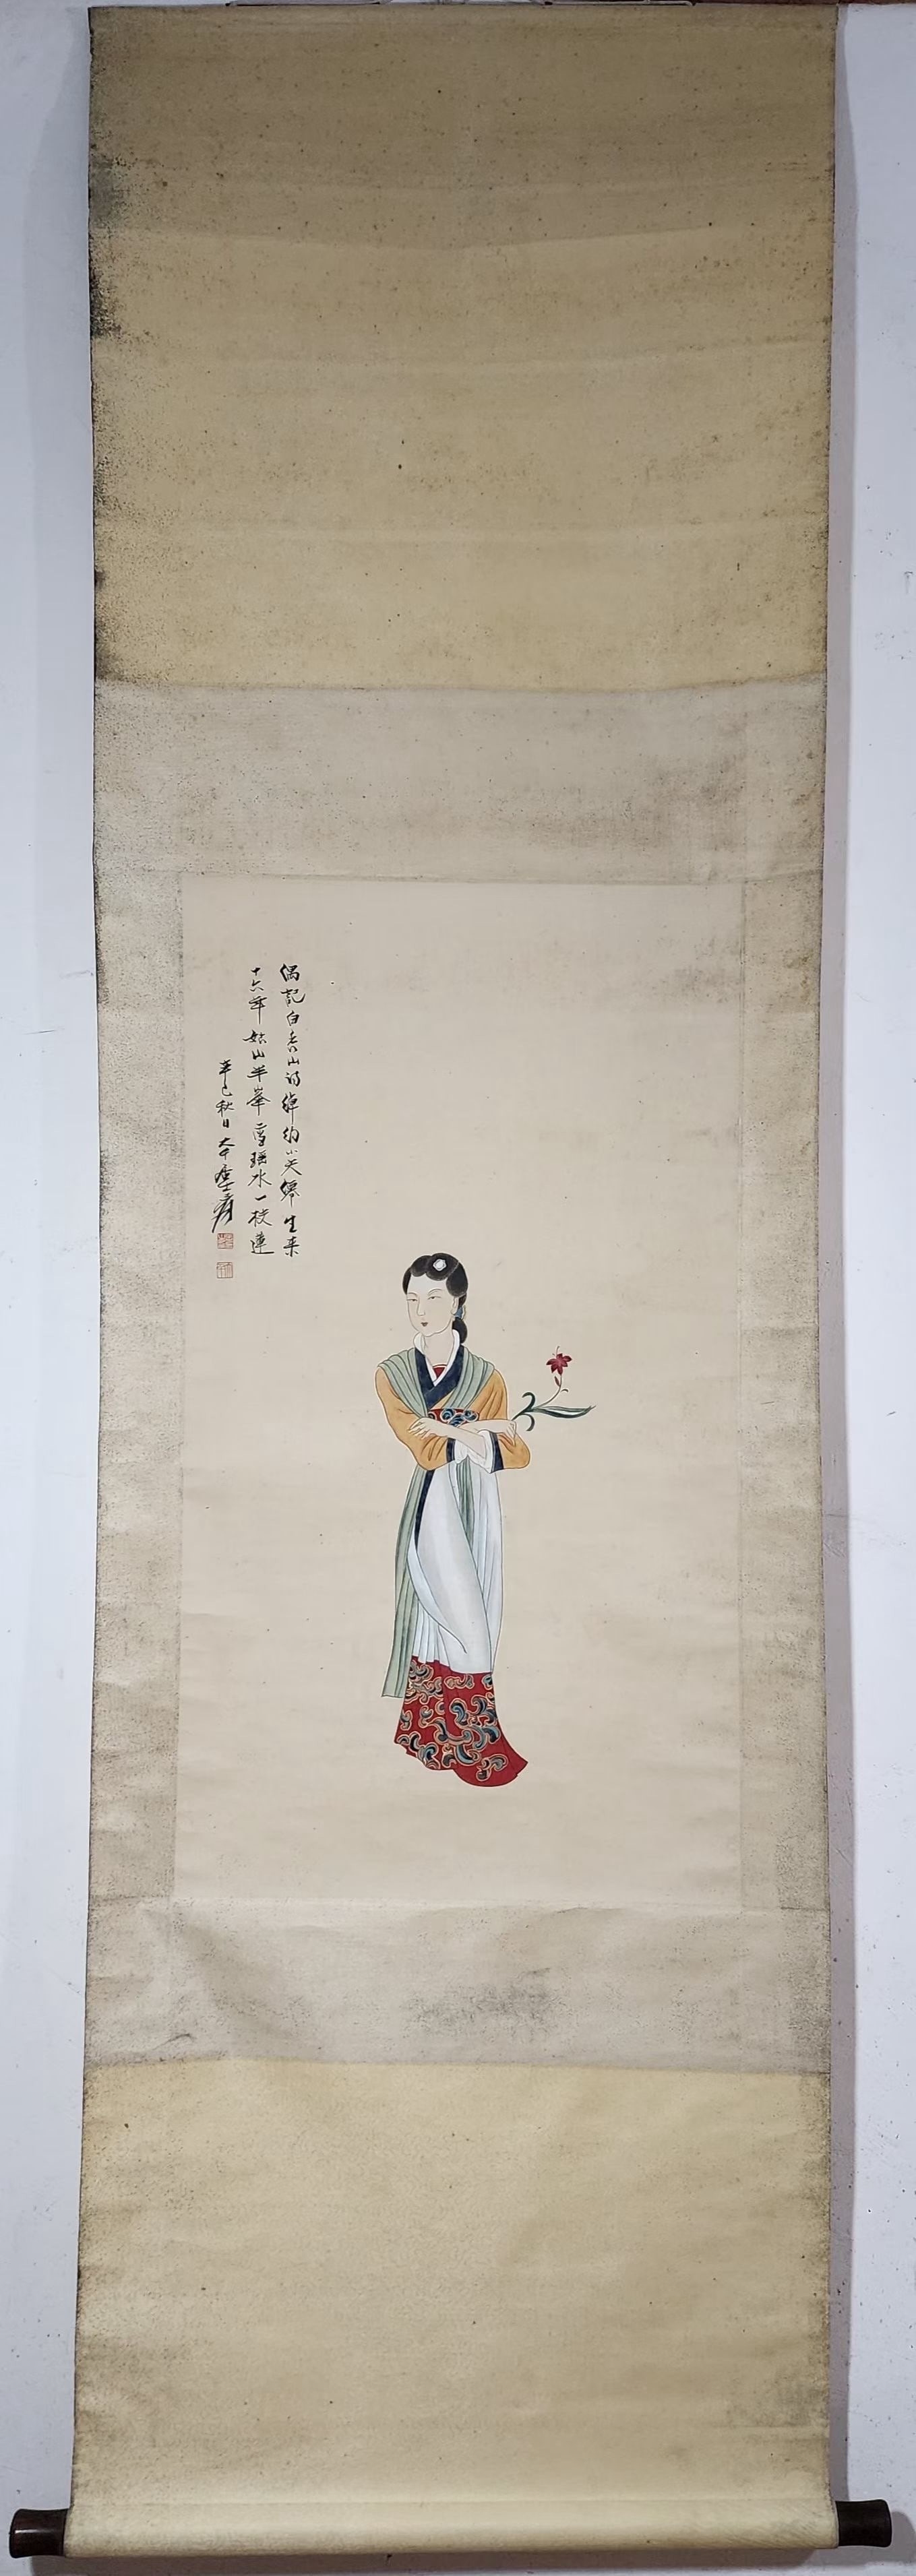 偶記白香山詩綽約小天僊生来
十六年姑山半峯雪瑶水一枝蓮
辛巳秋日大千居士爰